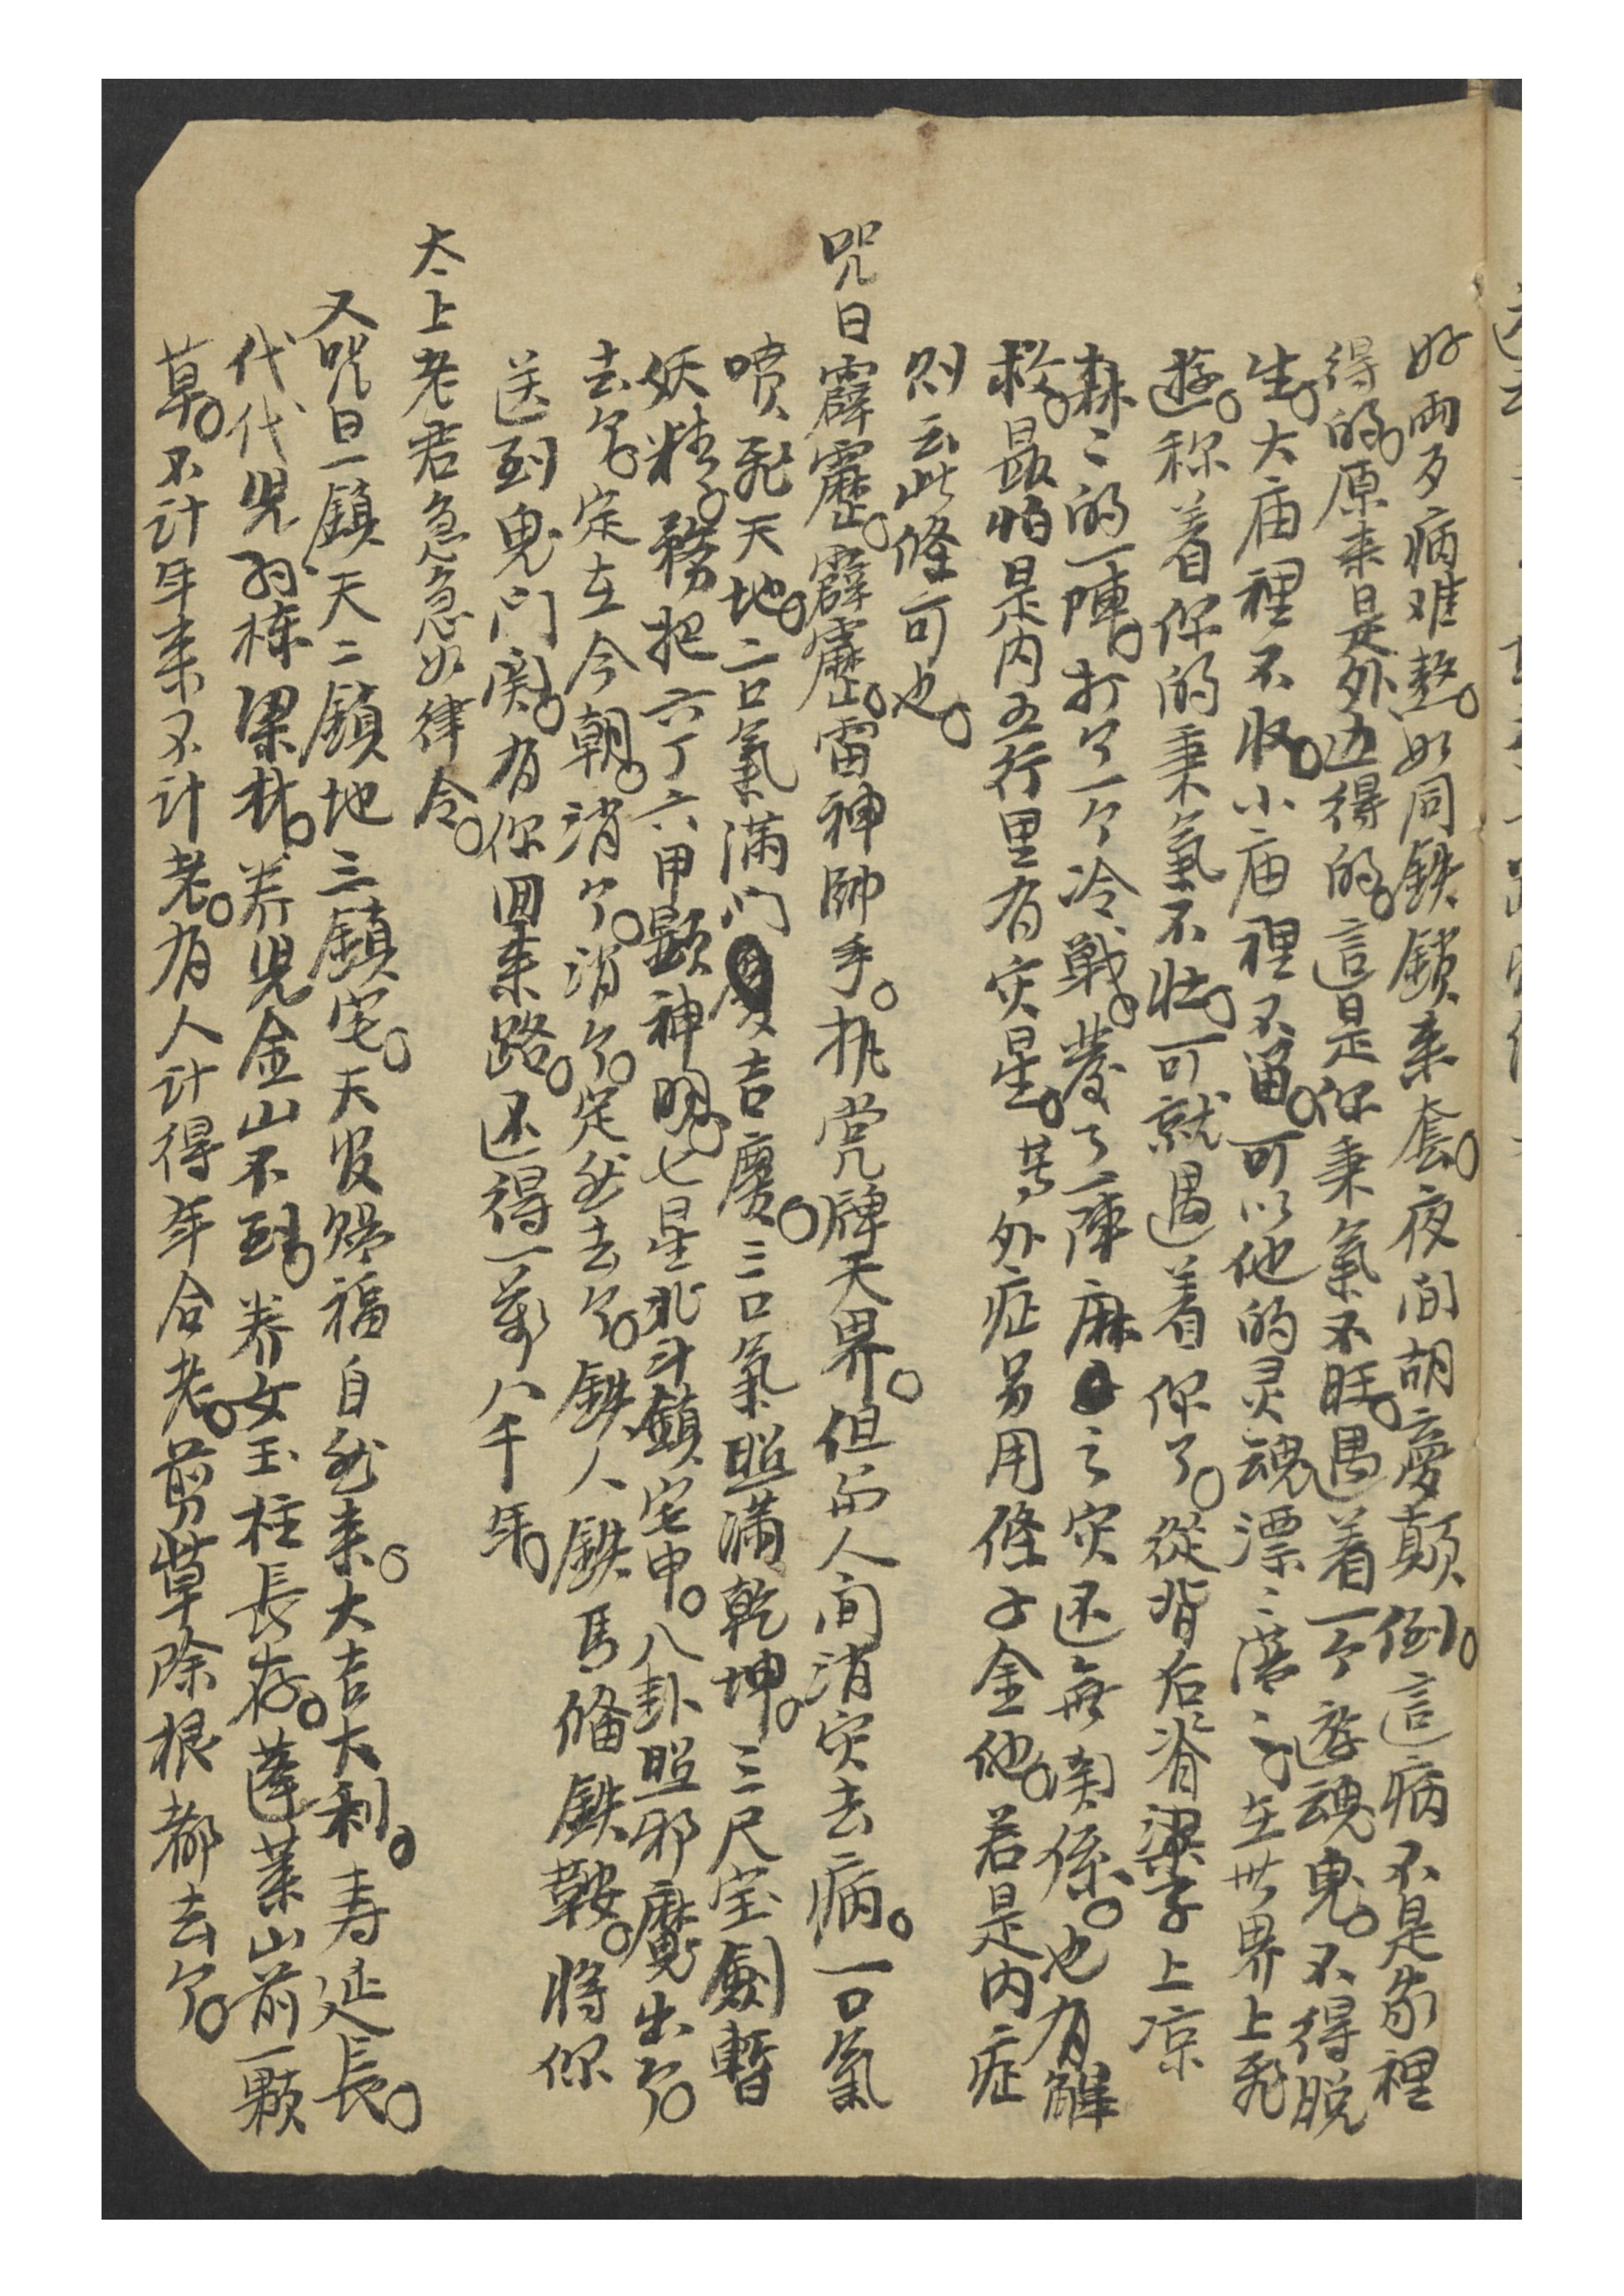 好兩歹病难熬。如同鉄鎖来套。夜间胡夢颠倒。這病不是家裡
得的。原来是外边得的。這是你秉氣不旺。遇着一个遊魂鬼。不得脱
生。大庙裡不收。小庙裡不留。可以他的灵魂漂〻蕩〻。在世界上飛
遊。称着你的秉氣不壮。可就遇着你了。從背后脊梁子上凉
森〻的一陣。打了一个冷戰。發了一陣麻之灾还無関係。也有觧
救。最怕是内五行里有灾星。其外症另用條子金他。若是内症
则云此條可也。
咒曰霹靂。霹靂。雷神帥手。执掌牌天界。但而人间消灾去病。一口氣
喷飛天地。二口氣滿门吉慶。三口氣照滿乾坤。三尺宝劍暫
妖精。務把六丁六甲顕神明。七星北斗鎮宅中。八卦照邪魔出了。
去了。定在今朝。消了。消了。定然去了。鉄人鉄馬俻鉄鞍。将你
送到鬼门関。有你回来路。还得一萬八千年。
太上老君急急如律令。
又咒曰一鎮天二鎮地三鎮宅。天官賜福自然来。大吉大利。寿延長。
代代児孙棟梁材。养児金山不到。养女玉柱長存。蓬莱山前一颗
草。不计年来不计老。有人计得年合老。剪草除根都去了。